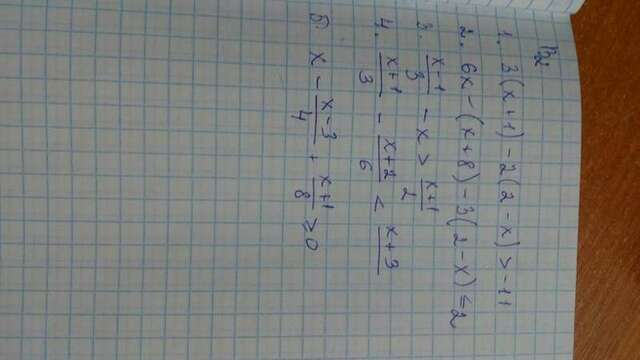 В2
1. 3(x+1)-2(2-x)>-11
2. 6x-(x+8)-3(2-x)≤2
3. x-1/3 - x > x+1/2
4. x+1/3 - x+2/6 < x+3/
5. x - x-3/4 + x+1/8 ≥ 0